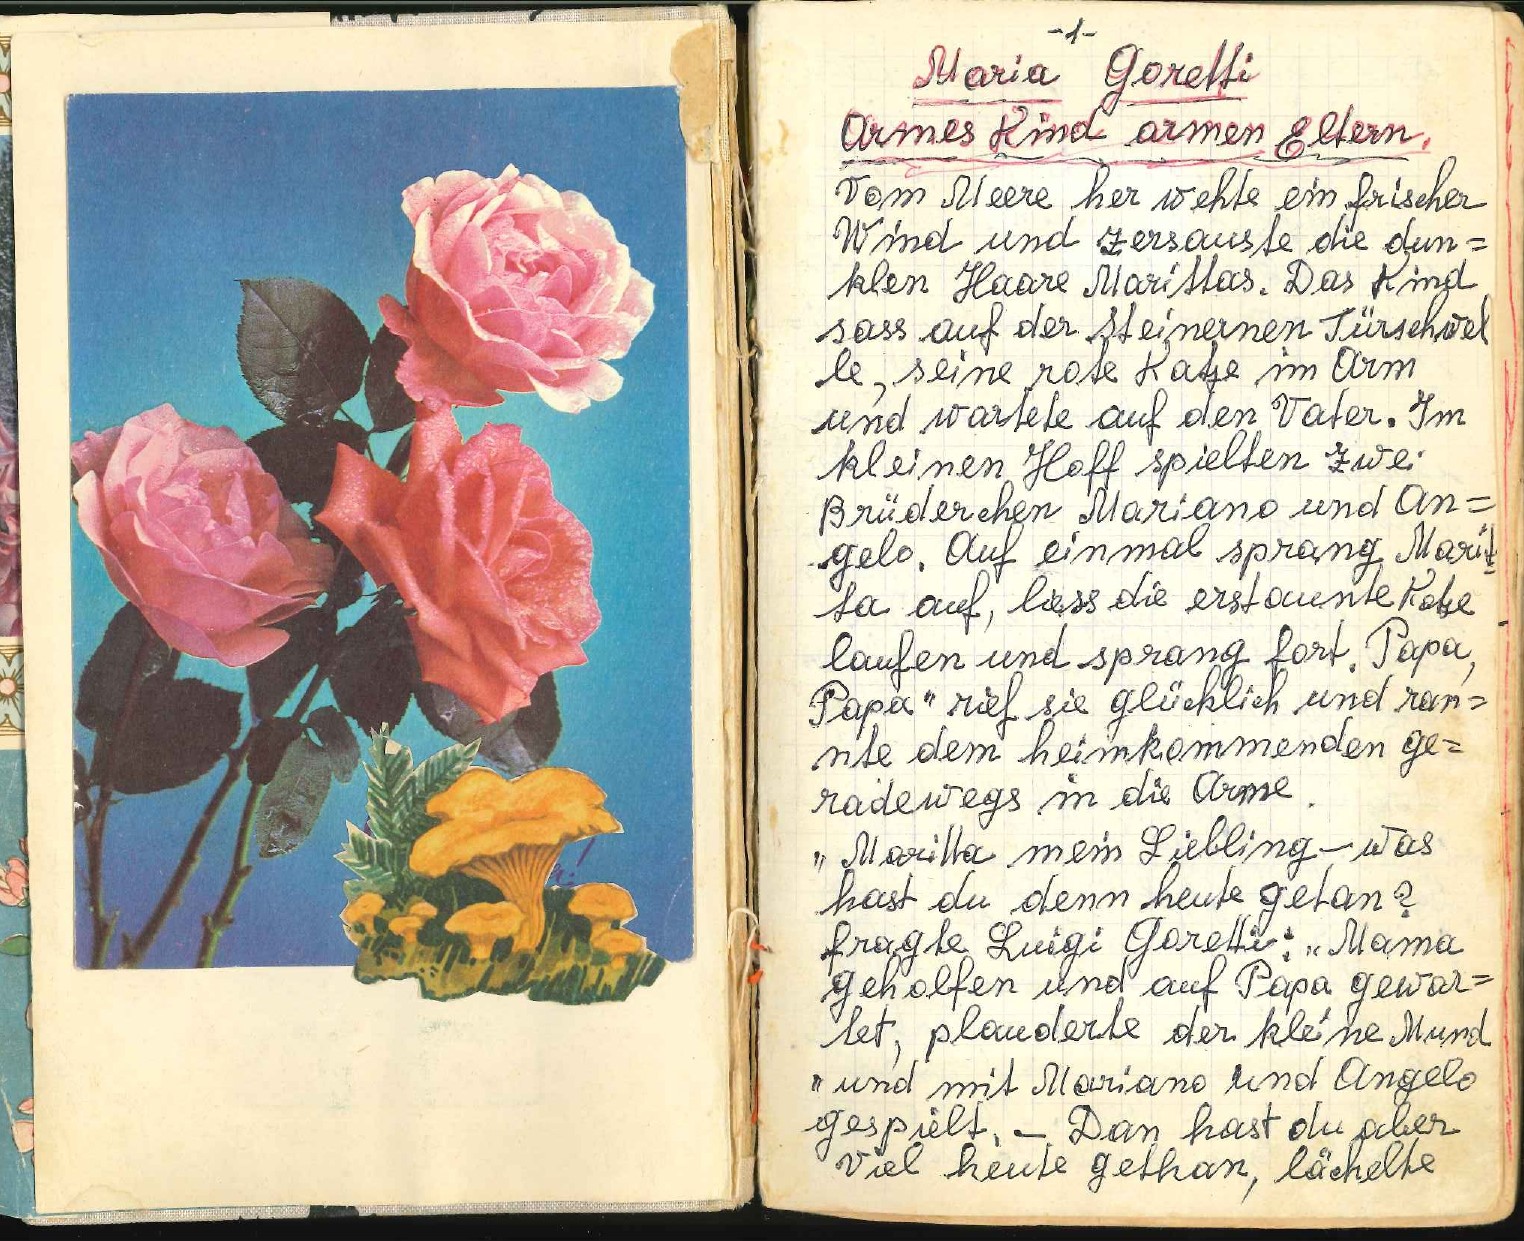 -1-
Maria Goretti
Armes Kind armen Eltern.
Vom Meere her wehte ein frischer
Wind und zersauste die dun=
klen Haare Marittas. Das Kind
sass auf der steinernen Türschwel
le, seine rote Katze im Arm
und wartete auf den Vater. Im
kleinen Hoff spielten zwei
Brüderchen Mariano und An=
gelo. Auf einmal sprang Marit=
ta auf, liess die erstaunte Katze
laufen und sprang fort. Papa,
Papa" rief sie glücklich und ran=
nte dem heimkommenden ge=
radewegs in die Arme.
„Maritta mein Liebling – was
hast du denn heute getan?
fragte Luigi Goretti: „Mama
geholfen und auf Papa gewar=
tet, plauderte der kleine Mund
"und mit Mariano und Angelo
gespielt. – Dan hast du aber
viel heute gethan, lächelte